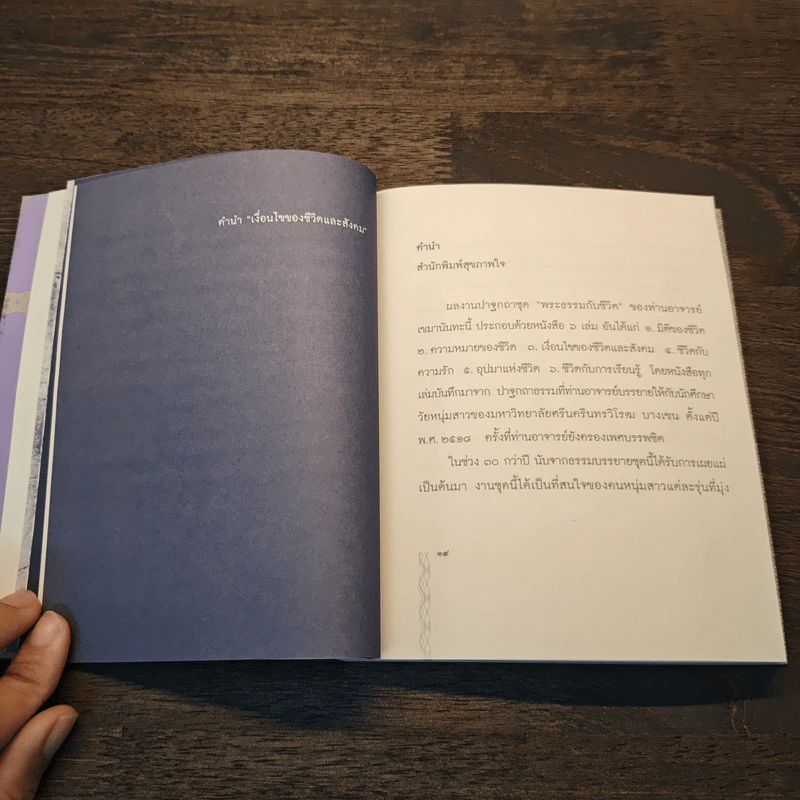 คำนำ "เงื่อนไขของชีวิตและสังคม"
คำนำ
สำนักพิมพ์สุขภาพใจ
ผลงานปาฐกถาชุด "พระธรรมกับชีวิต" ของท่านอาจารย์
เขมานันทะนี้ ประกอบด้วยหนังสือ ๖ เล่ม อันได้แก่ ๑. มิติของชีวิต
๒. ความหมายของชีวิต ๓. เงื่อนไขของชีวิตและสังคม ๔. ชีวิตกับ
ความรัก ๕. อุปมาแห่งชีวิต ๖. ชีวิตกับการเรียนรู้ โดยหนังสือทุก
เล่มบันทึกมาจาก ปาฐกถาธรรมที่ท่านอาจารย์บรรยายให้กับนักศึกษา
วัยหนุ่มสาวของมหาวิทยาลัยศรีนครินทรวิโรฒ บางเขน ตั้งแต่ปี
พ.ศ. ๒๕๑๘ ครั้งที่ท่านอาจารย์ยังครองเพศบรรพชิต
ในช่วง ๓๐ กว่าปี นับจากธรรมบรรยายชุดนี้ได้รับการเผยแผ่
เป็นต้นมา งานชุดนี้ได้เป็นที่สนใจของคนหนุ่มสาวแต่ละรุ่นที่มุ่ง
๑๙